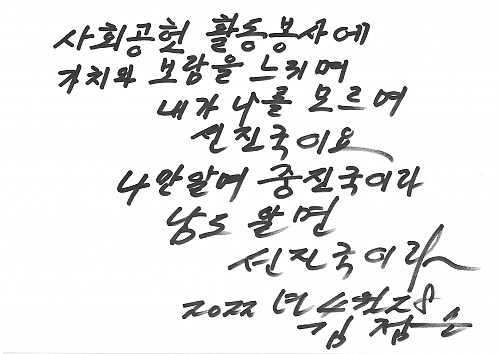 사회공헌 활동봉사에
가치와 보람을 느끼며
내가 나를 모르며
선진국이요
나만알며 중진국이라
남도 알면
선진국이라
2022 년 4월 28
김 점